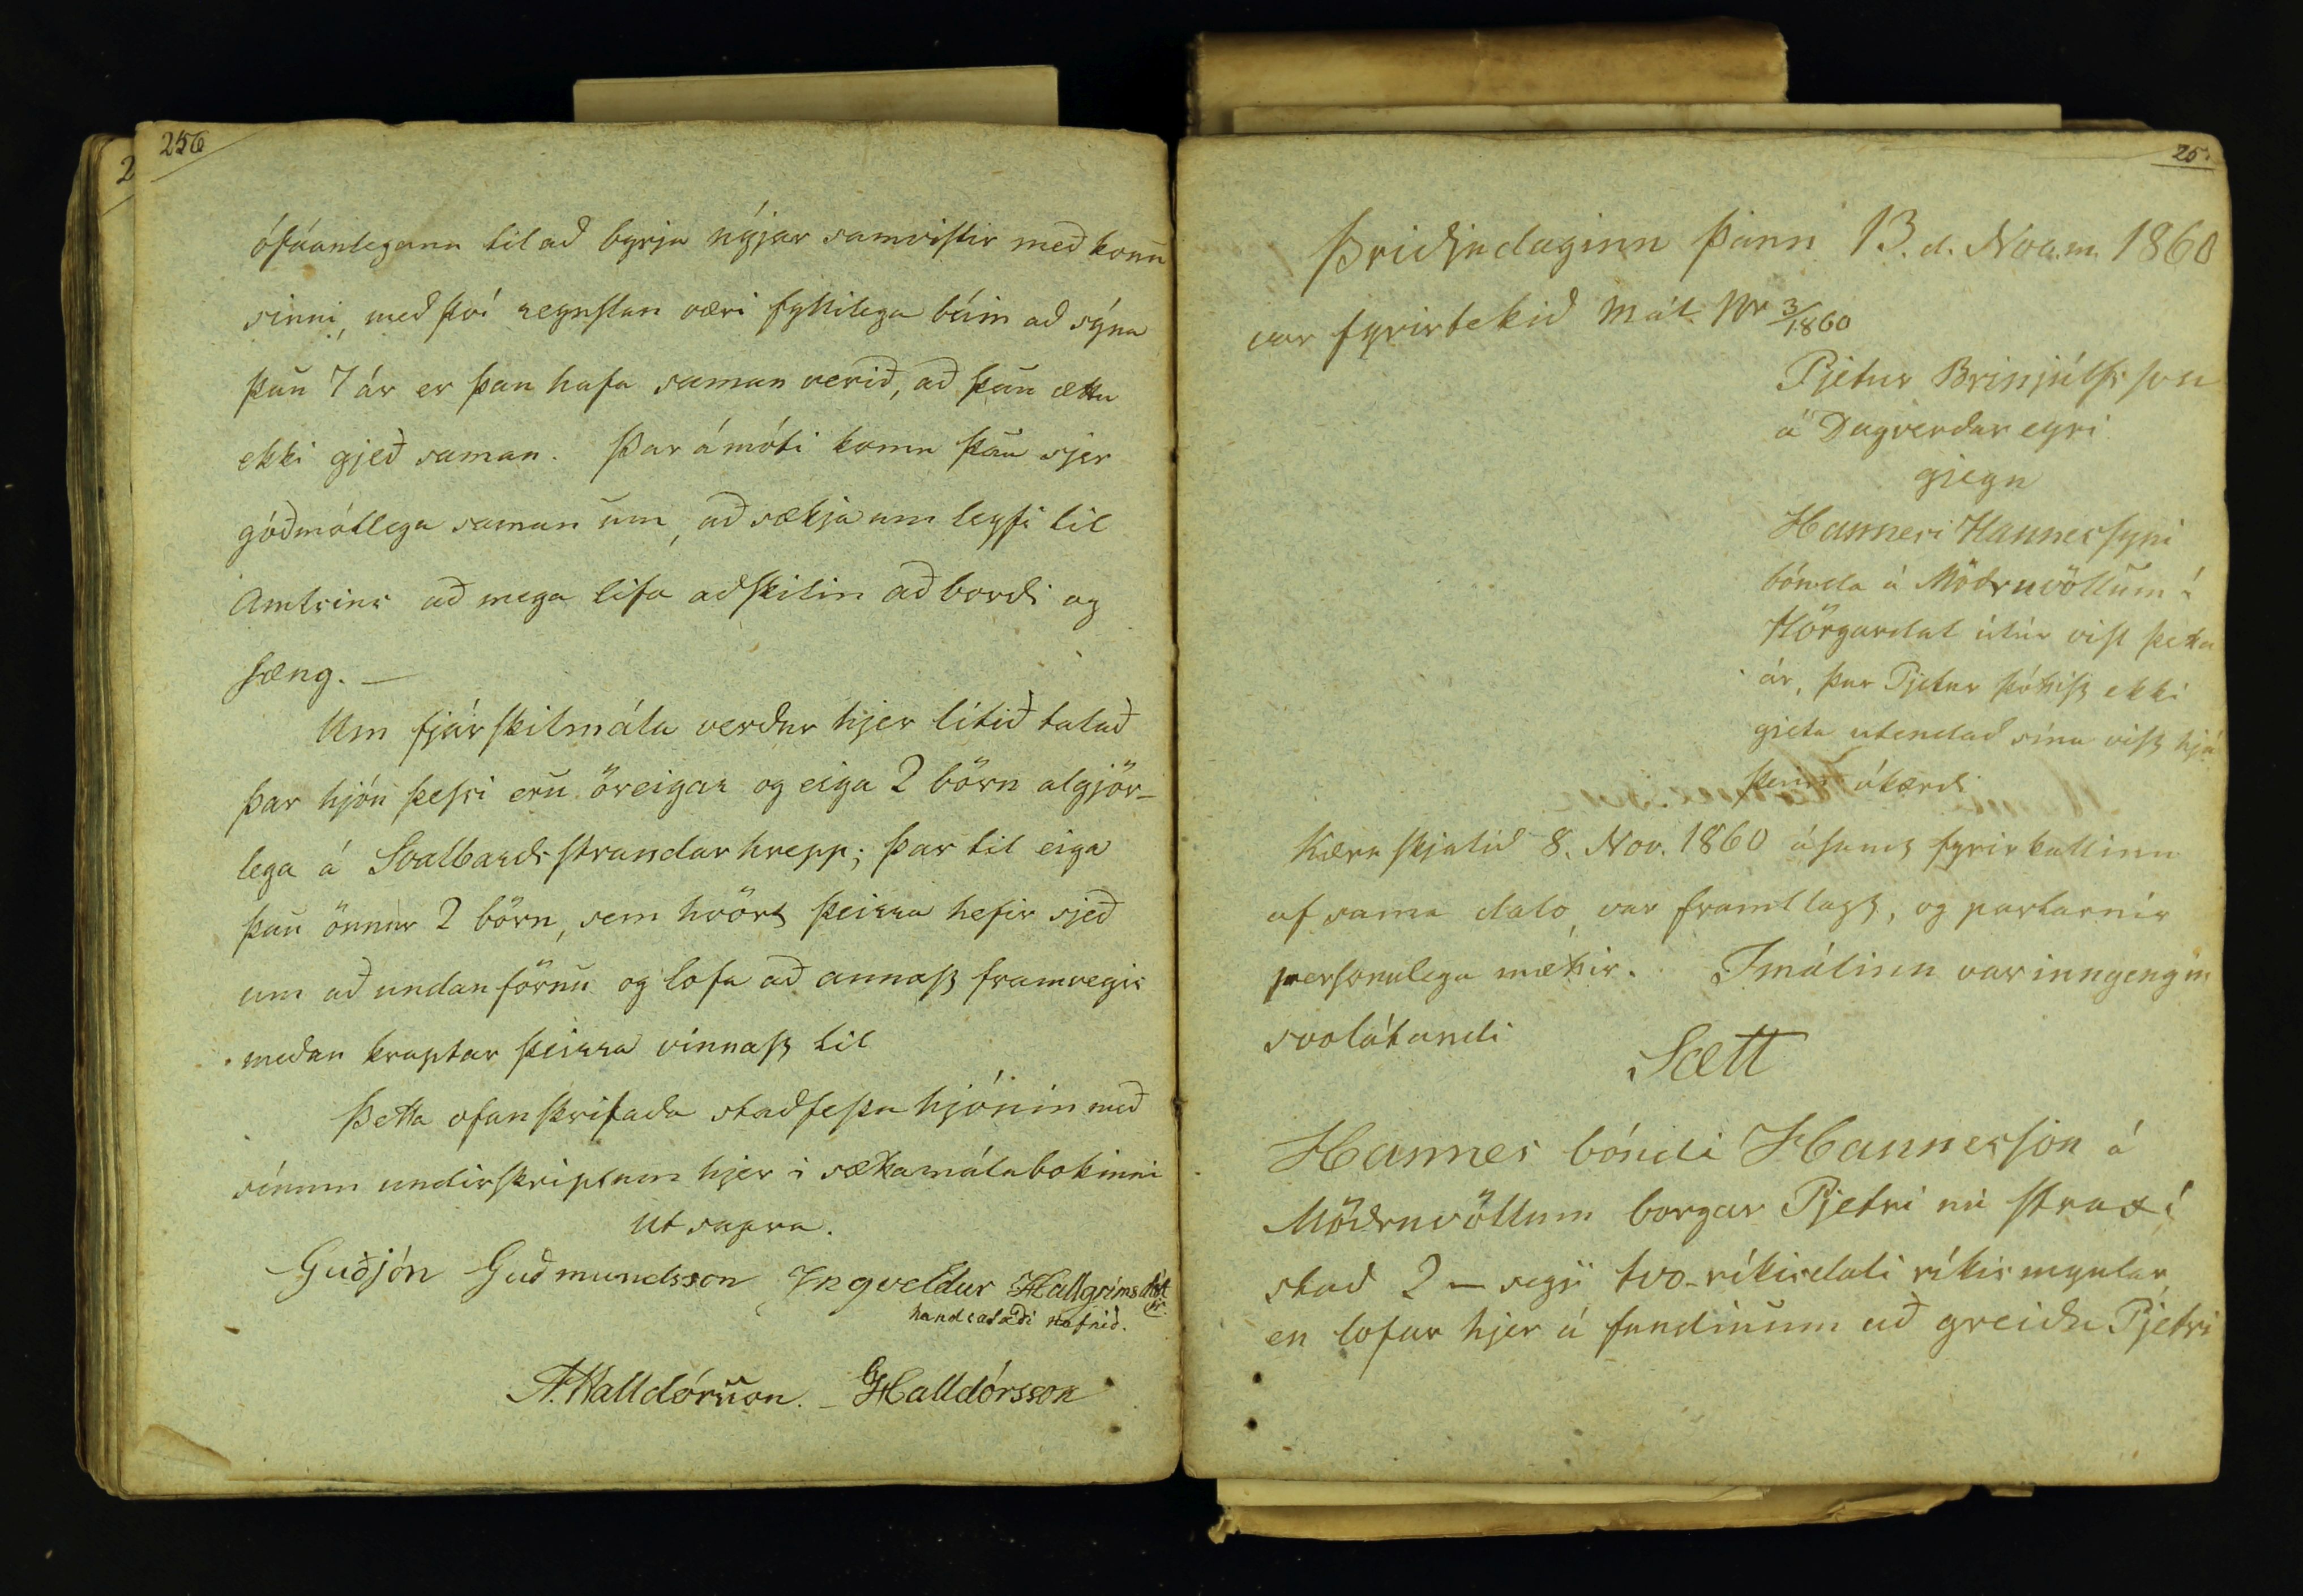 256
ófáanlegann til að byrja nýjar samvistir með konu
sinni, með því reynslan væri fyllilega búin að sýna
þau 7 ár er þau hafa saman verið, að þau ættu
ekki gjeð saman. Þar ámóti komu þau sjer
góðmótlega saman um, að sækja um leyfi til
Amtsins að mega lifa aðskilin að borði og
sæng. —
Um fjárskilmála verður hjer lítið talað
þar hjón þessi eru öreigar og eiga 2 börn algjör-
lega á Svalbarðsstrandarhrepp; þar til eiga
þau önnur 2 börn, sem hvört þeirra hefir sjeð
um að undanförnu og lofa að annast framvegis
meðan kraptar þeirra vinnast til
Þetta ofanskrifaða staðfesta hjónin með
sínum undirskriptum hjer í sættamálabókinni
Ut supra.
Guðjón Guðmundsson Ingveldur Hallgrímsdótt
ir
handsalaði nafnið.
A. Halldórsson. – GHalldórsson
25
Þriðjudaginn þann 13. d. Nov.m. 1860
var fyrirtekið Mál Nr 3/1860
Pjetur Brinjúlfsson
á Dagverðareyri
gjegn
Hannesi Hannessyni
bónda á Möðruvöllum í
Hörgardal útúr vist þetta
ár, þar Pjetur þóttist ekki
gjeta útendað sína vist hjá
þeim ákærdi
Kæruskjalið 8. Nov. 1860 ásamt fyrirkallinu
af sama dato, var framlagt, og partarnir
personulega mættir. Í málinu var inngengin
svolátandi
Sætt
Hannes bóndi Hannesson á
Möðruvöllum borgar Pjetri nú strax í
stað 2 – segi tvo – ríkisdali ríkismyntar
en lofar hjer á fundinum að greiða Pjetri